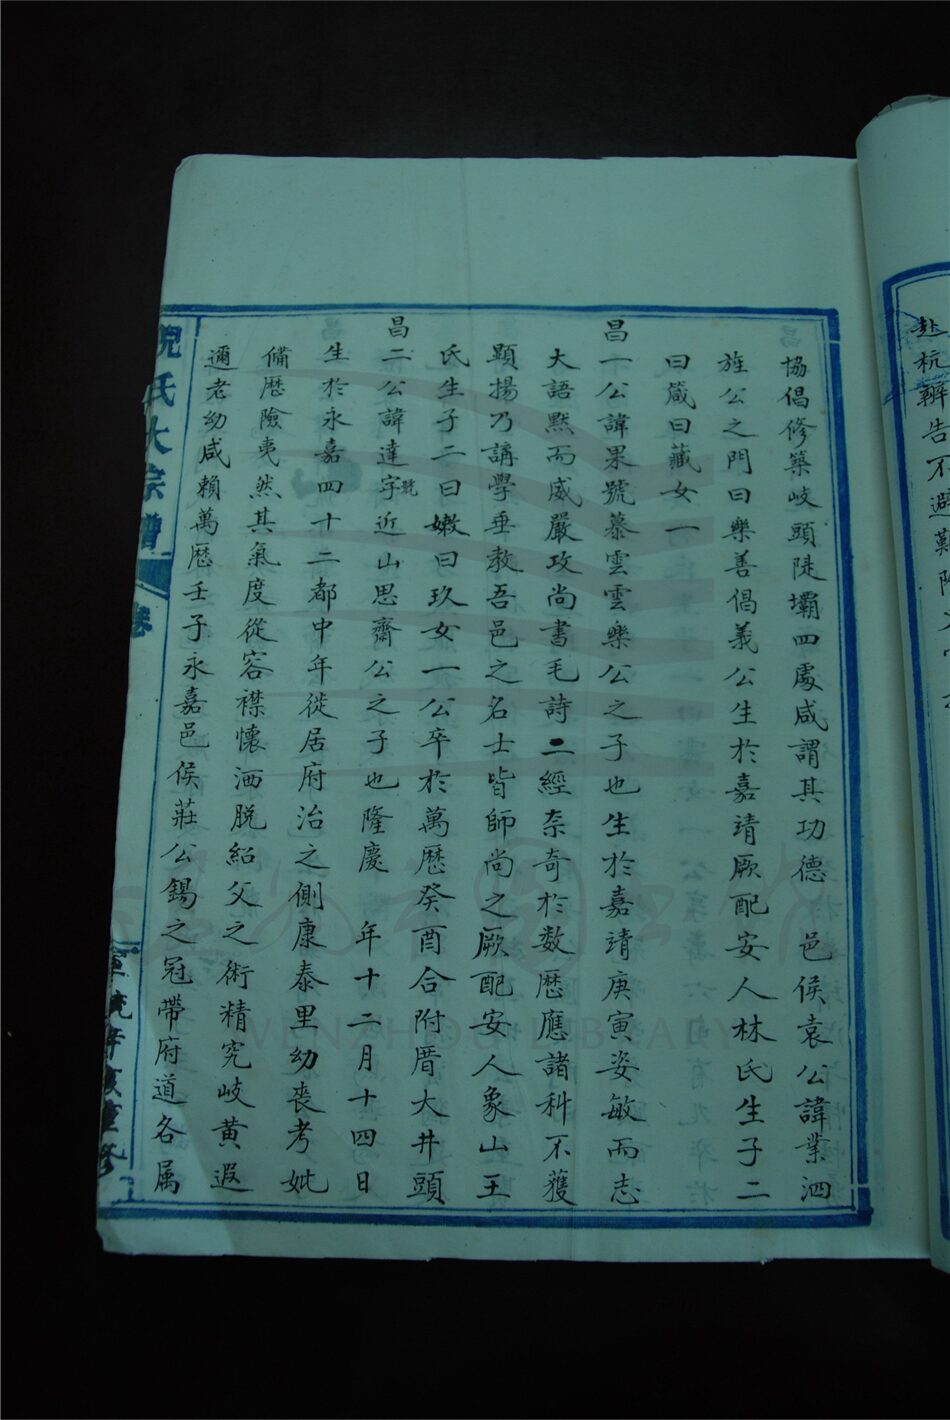 協倡修築岐頭陡壩四處咸謂其功德 邑侯袁公諱業泗
旌公之門曰樂善倡義公生於嘉靖厥配安人林氏生子二
曰箴曰藏女一
昌一公諱果號慕雲雲樂公之子也生於嘉靖庚寅姿敏而志
大語黙而威嚴攻尚書毛詩二經奈奇於数歷應諸科不獲
顯揚乃講學垂教吾邑之名士皆師尚之厥配安人象山王
氏生子二曰嫩曰玖女一公卒於萬歷癸酉合附厝大井頭
昌二公諱達字號近山思齋公之子也隆慶 年十二月十四日
生於永嘉四十二都中年徙居府治之側康泰里幼喪考妣
備歷險夷然其氣度從容襟懷洒脱紹父之術精究岐黄遐
邇老幼咸賴萬歷壬子永嘉邑侯莊公錫之冠帶府道各属
倪氏大宗譜
卷
WENZHOU LIBRARY
赴杭辦告不避